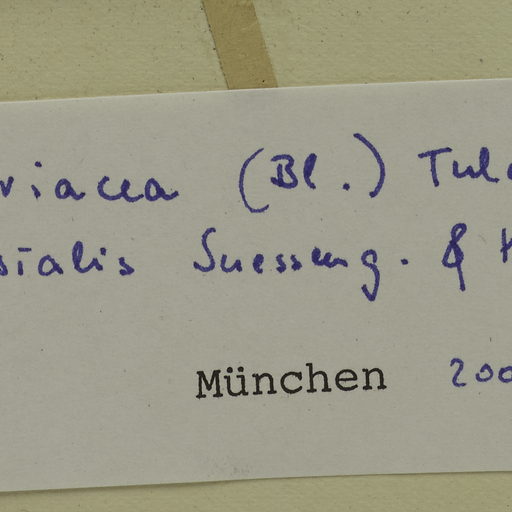 riacea (Bl.) Tul
sialis Suesseng. &
München 200